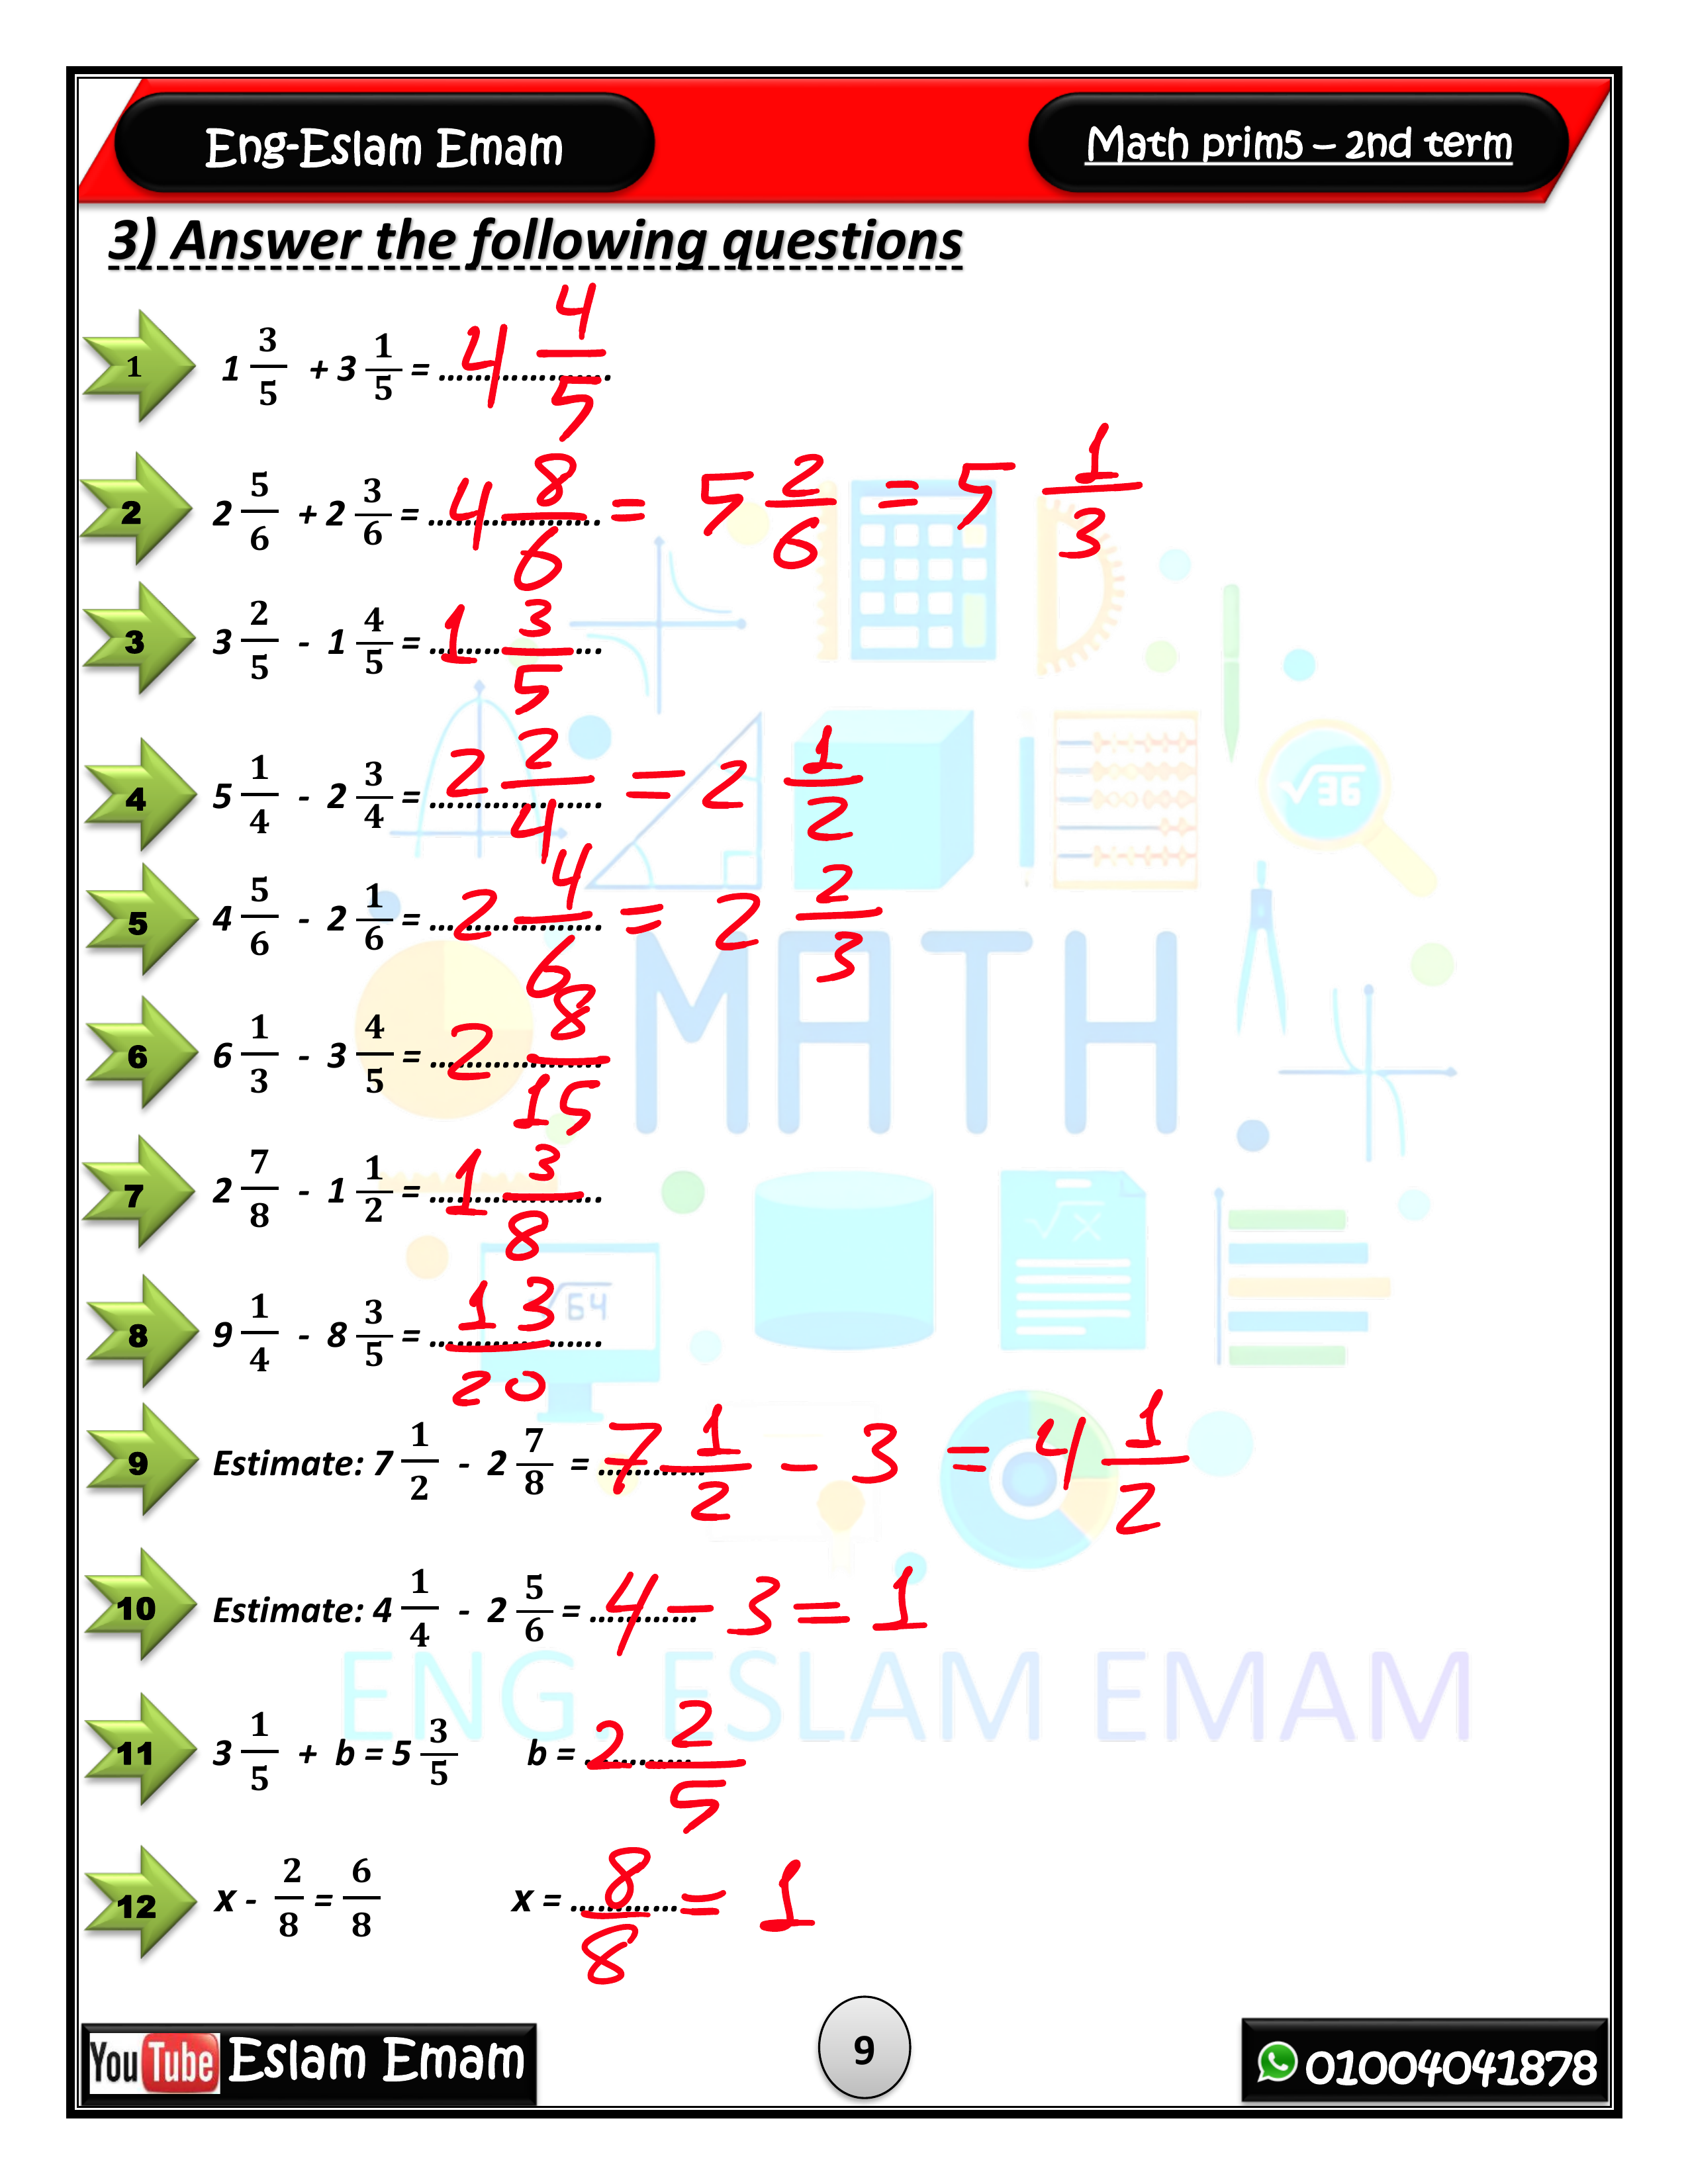 Eng-Eslam Emam
Math prim5 – 2nd term
3) Answer the following questions
1 1 3/5 + 3 1/5 = .................... 4 4/5
2 2 5/6 + 2 3/6 = .................... 4 8/6 = 5 2/6 = 5 1/3
3 3 2/5 - 1 4/5 = .................... 1 3/5
4 5 1/4 - 2 3/4 = .................... 2 2/4 = 2 1/2
5 4 5/6 - 2 1/6 = .................... 2 4/6 = 2 2/3
6 6 1/3 - 3 4/5 = .................... 2 8/15
7 2 7/8 - 1 1/2 = .................... 1 3/8
8 9 1/4 - 8 3/5 = .................... 13/20
9 Estimate: 7 1/2 - 2 7/8 = ............ 7 1/2 - 3 = 4 1/2
10 Estimate: 4 1/4 - 2 5/6 = ............ 4 - 3 = 1
11 3 1/5 + b = 5 3/5 b = ............ 2 2/5
12 x - 2/8 = 6/8 x = ............ 8/8 = 1
√36
MATH
√x
√64
ENG. ESLAM EMAM
YouTube Eslam Emam
9
01004041878